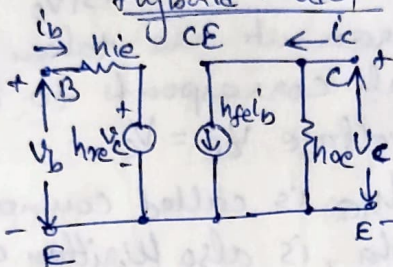 CE
ib hie ic
+ B C +
Vb hre Vc + - hfe ib hoe Vc
- E E -